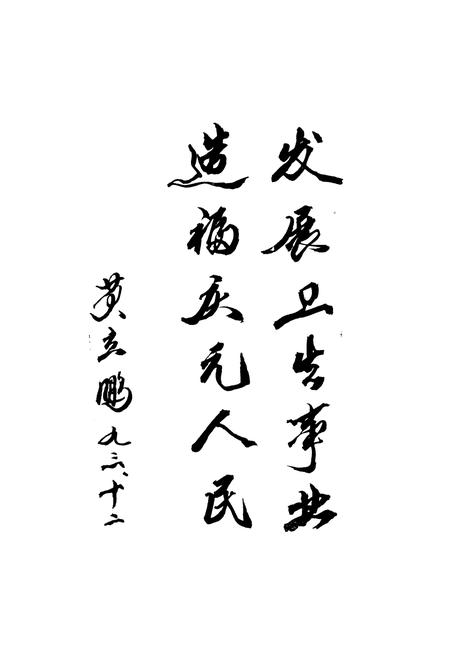 发展卫生事业
造福庆元人民
黄立鹏 九三、十二